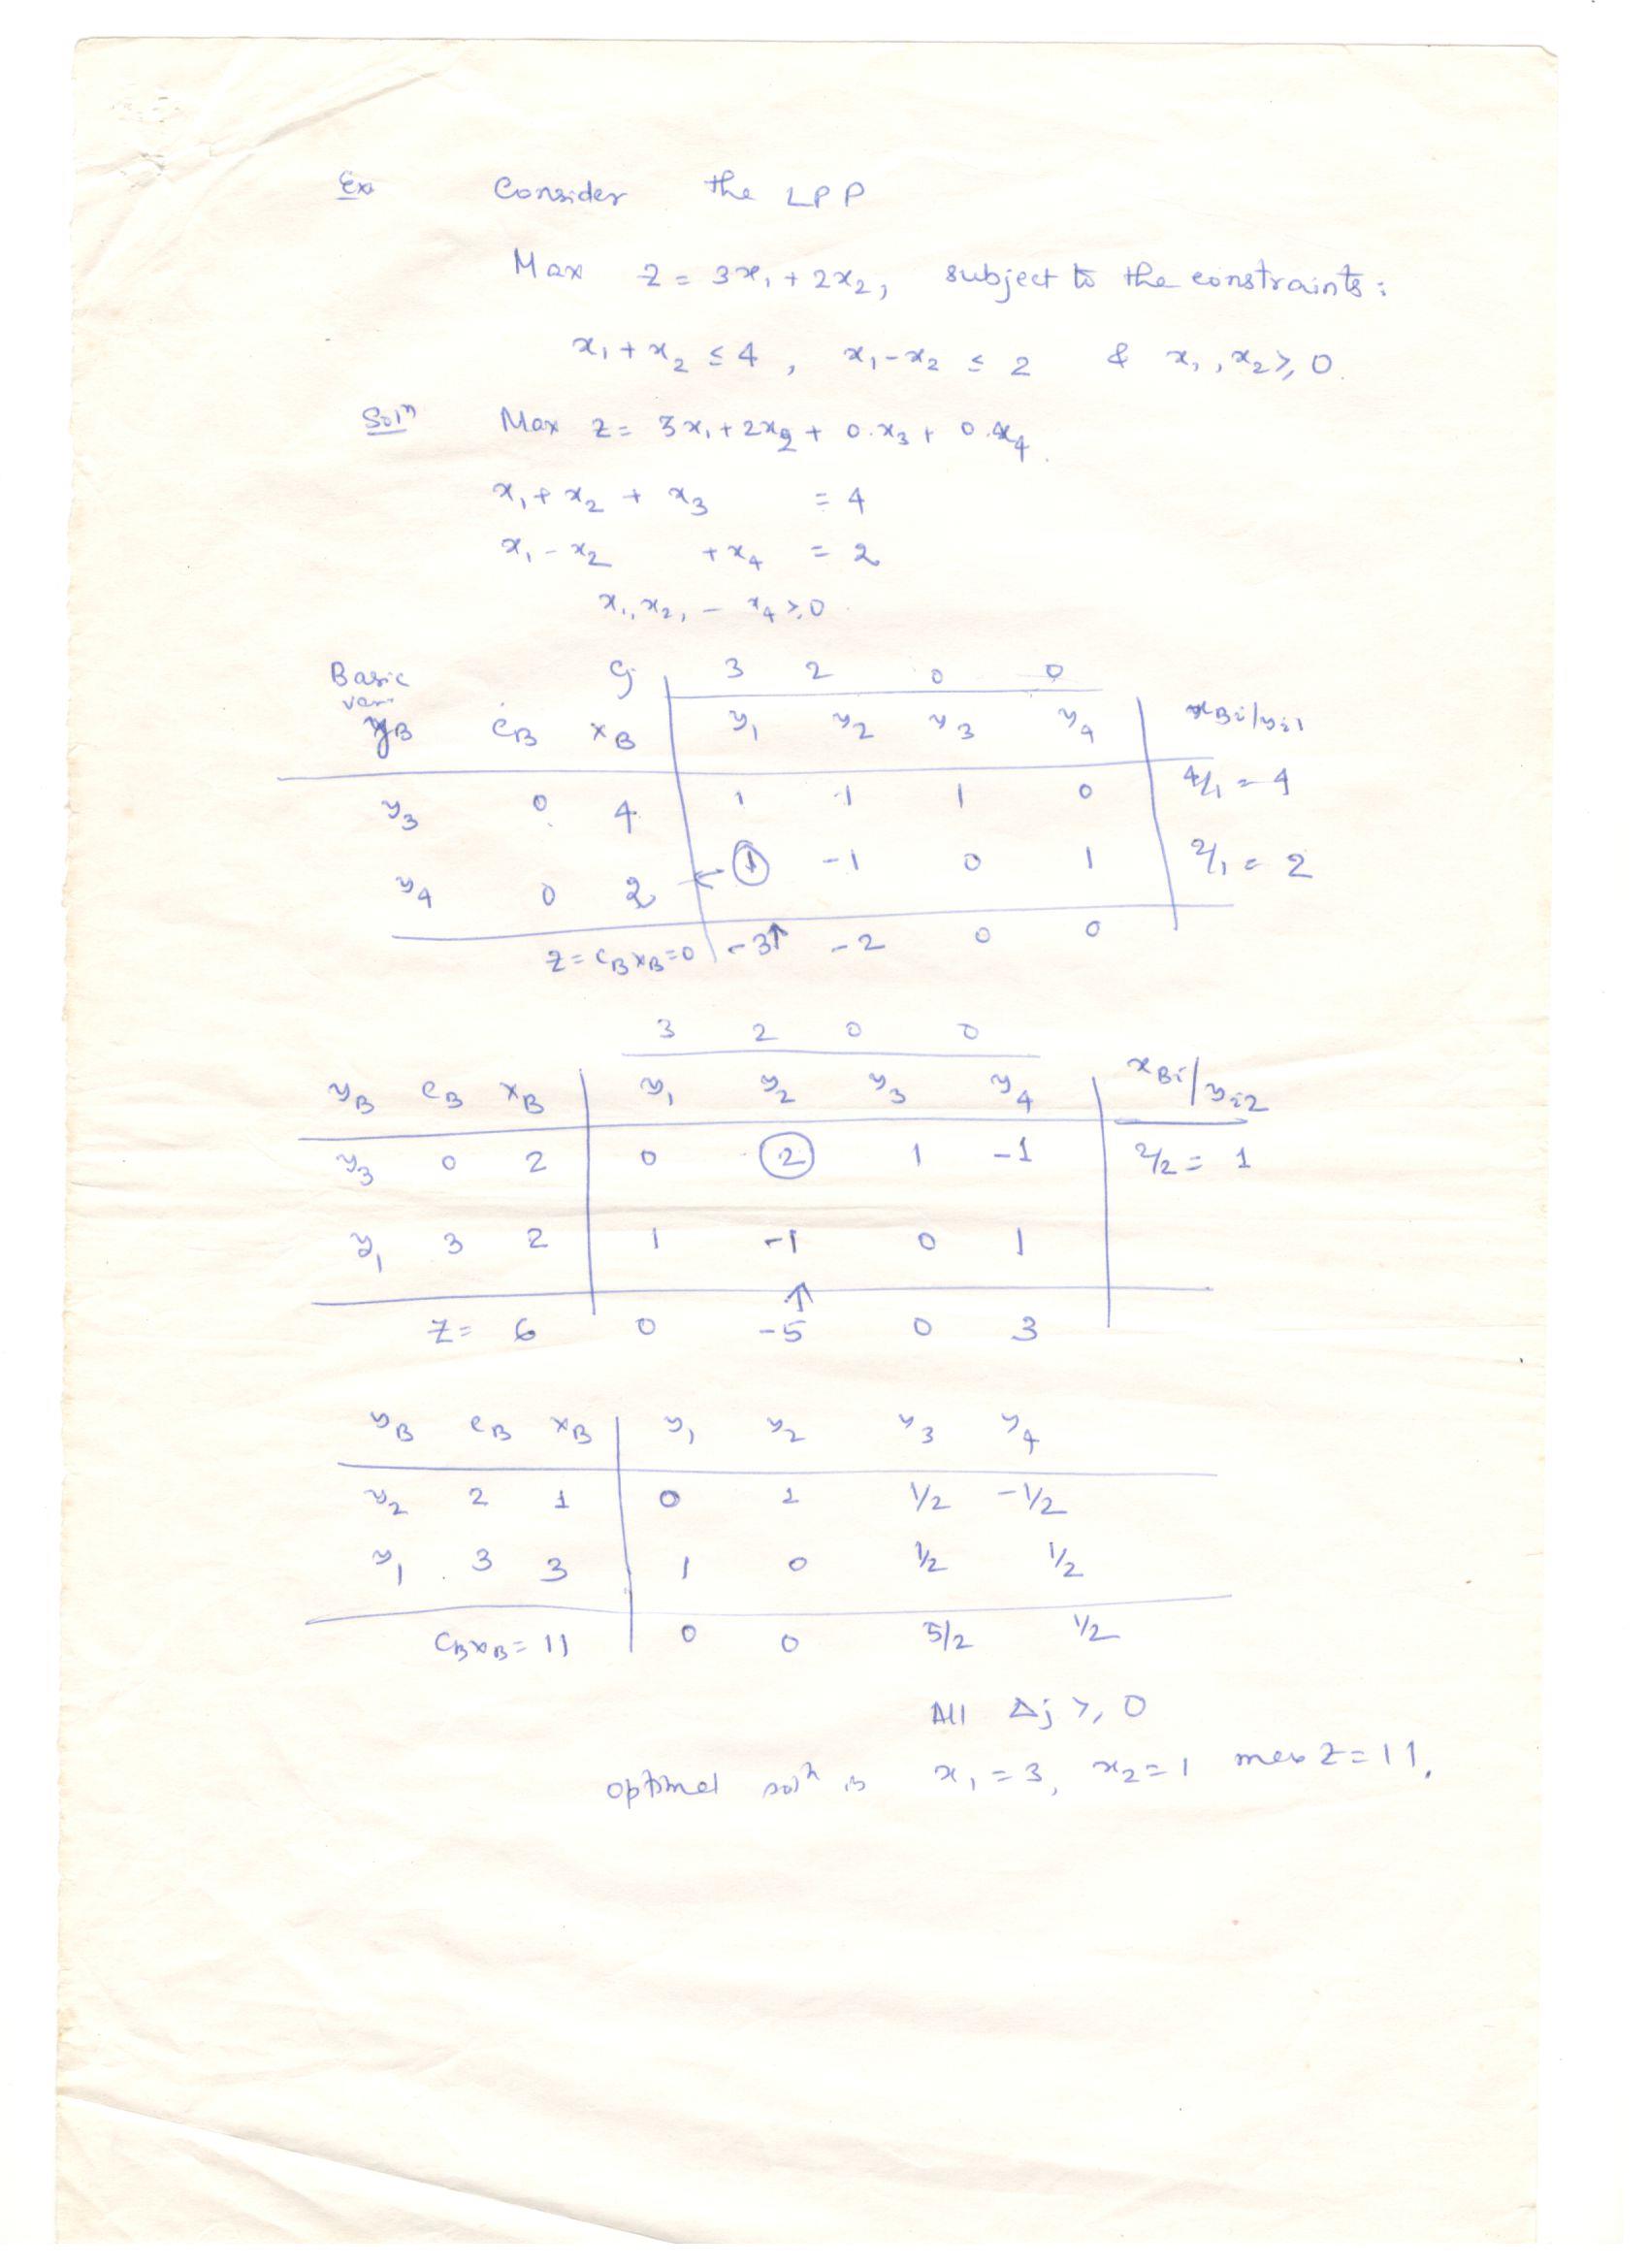 Ex Consider the LPP
Max z = 3x₁ + 2x₂, subject to the constraints:
x₁ + x₂ ≤ 4, x₁ - x₂ ≤ 2 & x₁, x₂ ≥ 0.
Solⁿ Max z = 3x₁ + 2x₂ + 0.x₃ + 0.x₄.
x₁ + x₂ + x₃ = 4
x₁ - x₂ + x₄ = 2
x₁, x₂, - x₄ ≥ 0.
Basic Cj 3 2 0 0
var
yB CB xB y₁ y₂ y₃ y₄ xBi/yi1
y₃ 0 4 1 1 1 0 4/1 = 4
y₄ 0 2 ← 1 -1 0 1 2/1 = 2
z = CB xB = 0 -3↑ -2 0 0
3 2 0 0
yB CB xB y₁ y₂ y₃ y₄ xBi/yi2
y₃ 0 2 0 2 1 -1 2/2 = 1
y₁ 3 2 1 -1 0 1
↑
z = 6 0 -5 0 3
yB CB xB y₁ y₂ y₃ y₄
y₂ 2 1 0 1 1/2 -1/2
y₁ 3 3 1 0 1/2 1/2
CB xB = 11 0 0 5/2 1/2
All Δj ≥ 0
optimal solⁿ is x₁ = 3, x₂ = 1 max z = 11.